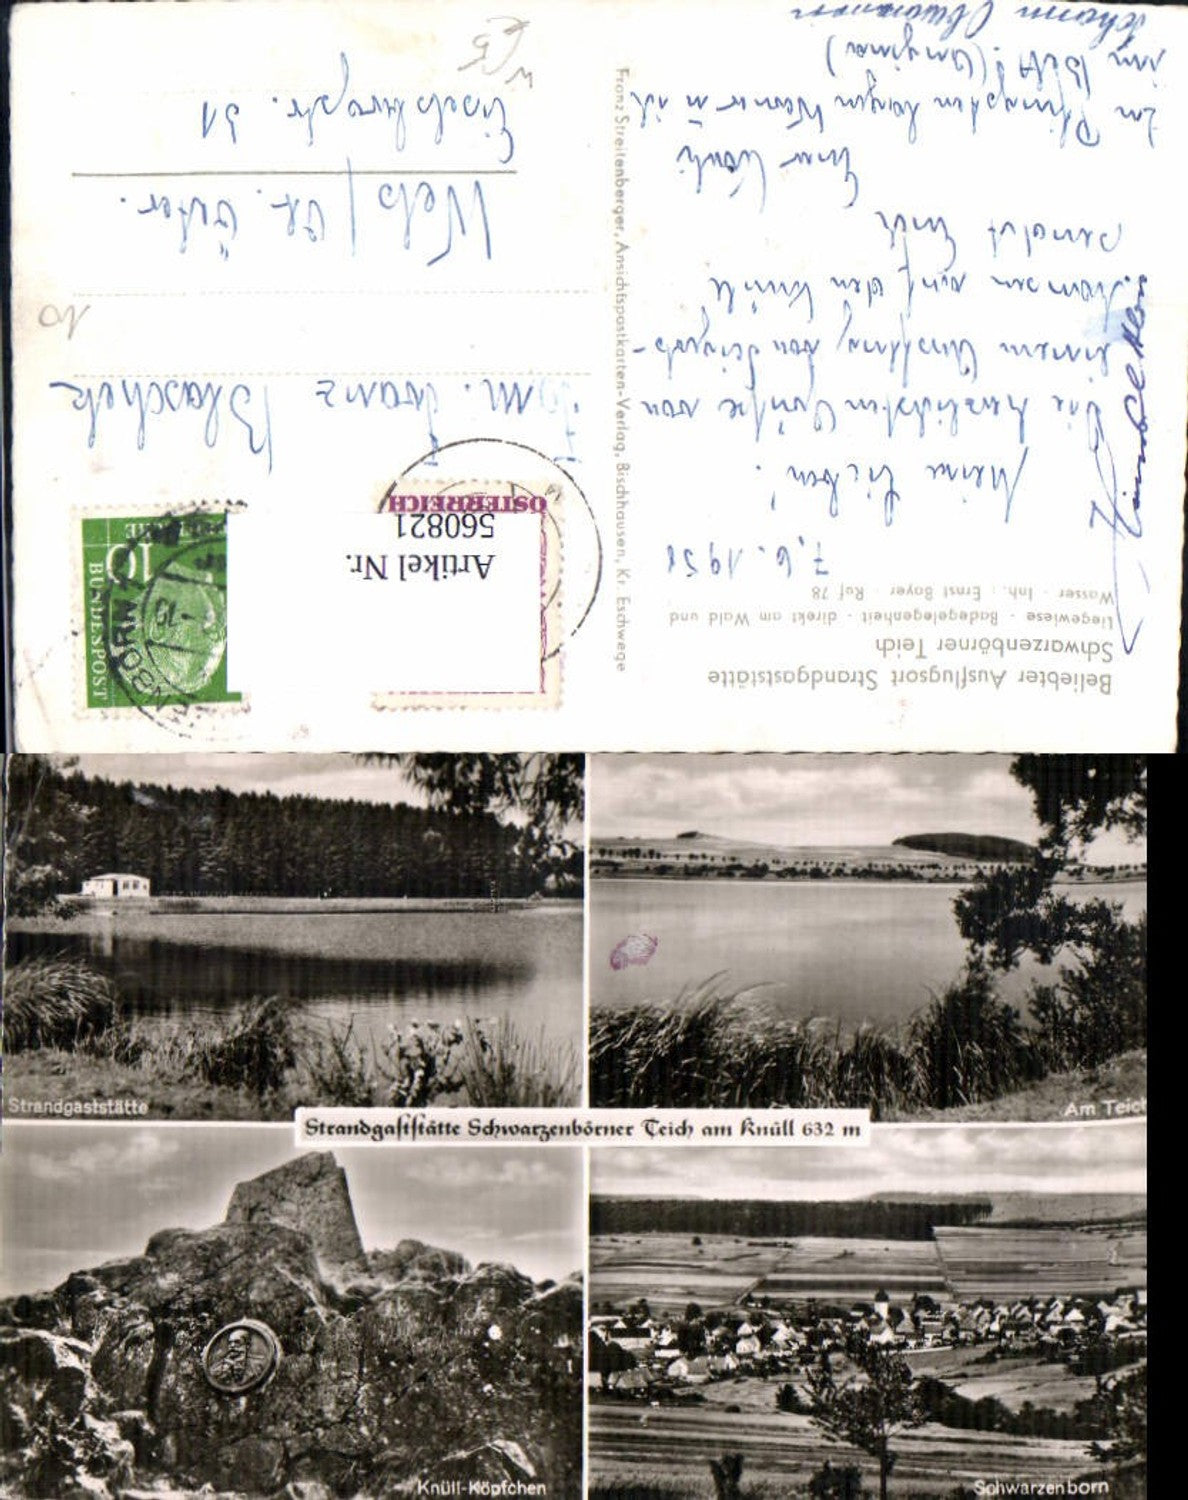 Beliebter Ausflugsort Strandgaststätte
Schwarzenbörner Teich
Liegewiese - Badegelegenheit - direkt am Wald und
Wasser · Inh.: Ernst Bayer · Ruf 78
7.6.1958
Meine Lieben!
Die herzlichsten Grüße von
einem Ausflug von
auf den Knüll
sendet Euch
Euer
Zu Pfingsten lagen Werner u. ich
im Bett! (Angina)
Franz Streitenberger, Ansichtspostkarten-Verlag, Bischhausen, Kr. Eschwege
ÖSTERREICH
Artikel Nr.
560821
10
BUNDESPOST
Fam. Franz Blaschek
10
Wels / Ob. Öster.
Eiselsbergstr. 31
Strandgaststätte
Am Teich
Strandgaststätte Schwarzenbörner Teich am Knüll 632 m
Knüll-Köpfchen
Schwarzenborn